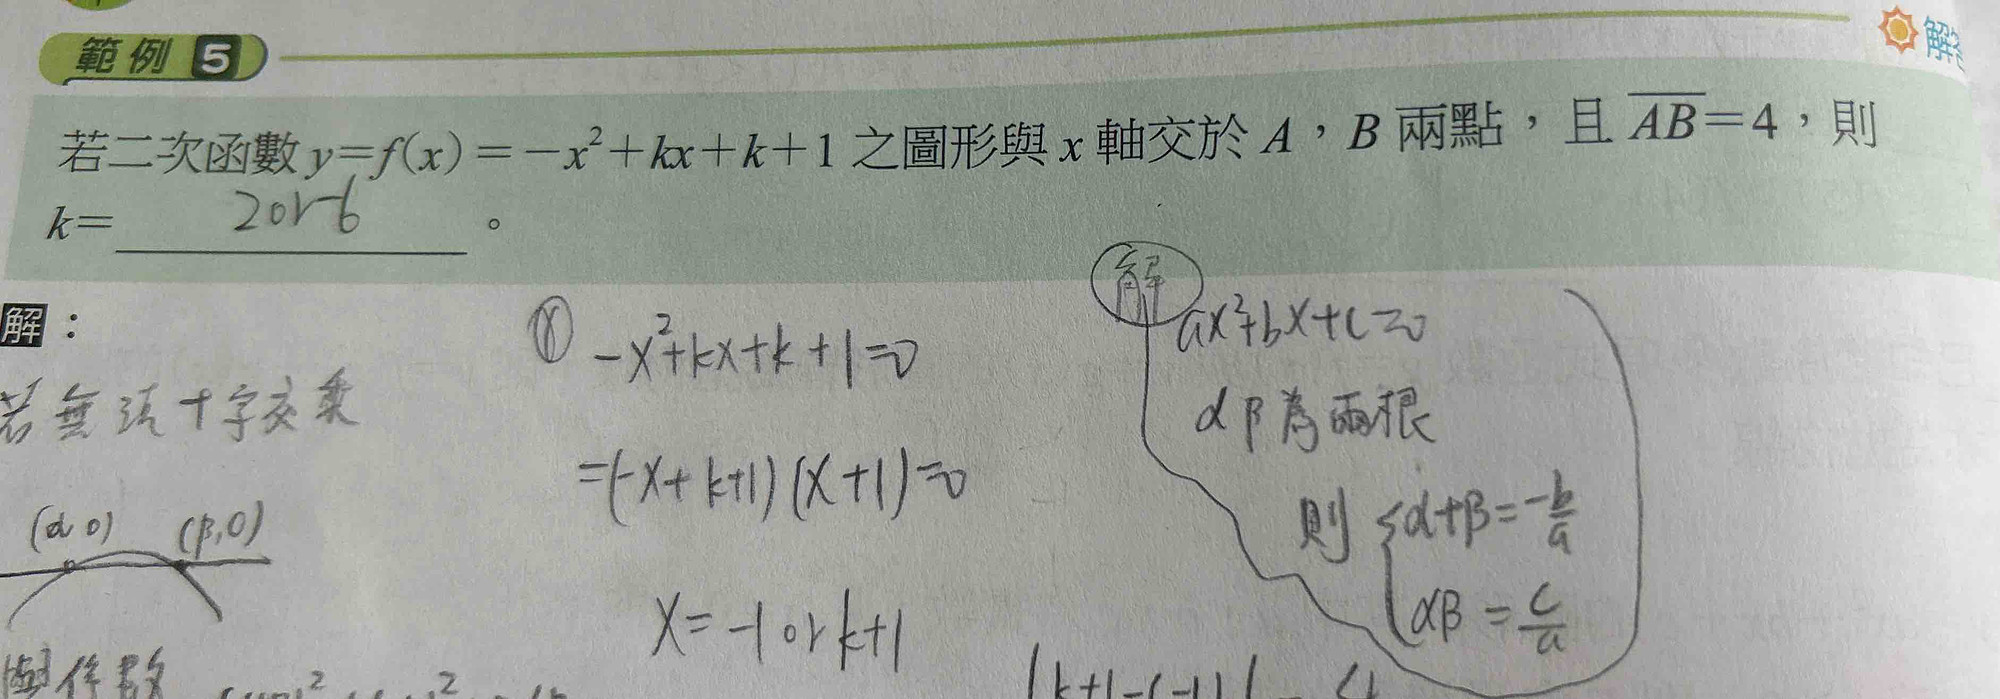 範例 5
解
若二次函數 y=f(x)=-x²+kx+k+1 之圖形與 x 軸交於 A,B 兩點,且 \overline{AB}=4,則
k= 2or-6 。
解:
若無法十字交乘
(α,0) (β,0)
-x²+kx+k+1=0
=(-x+k+1)(x+1)=0
x=-1 or k+1
解
ax²+bx+c=0
αβ為兩根
則 {α+β=-b/a
αβ=c/a
|k+1-(-1)|=4
與係數